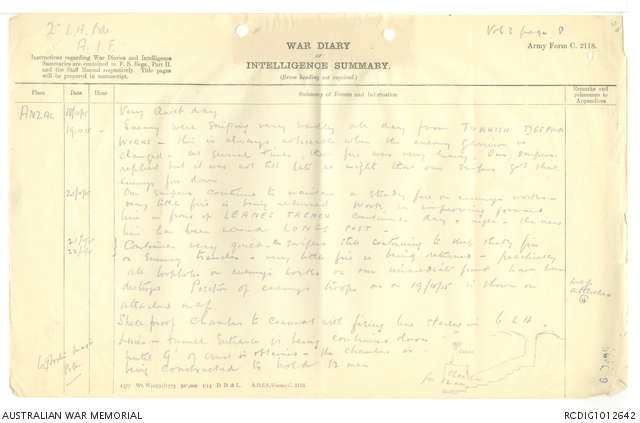 2nd L.H. Bde
A.I.F.
Vol 3 page 8
WAR DIARY
OF
INTELLIGENCE SUMMARY.
(Erase heading not required.)
Army Form C. 2118.
Instructions regarding War Diaries and Intelligence
Summaries are contained in F. S. Regs., Part II.
and the Staff Manual respectively. Title pages
will be prepared in manuscript.
Place
Date
Hour
Summary of Events and Information
Remarks and
references to
Appendices
ANZAC 18/10/15 Very Quiet day
19.10.15 Enemy were sniping very badly all day from TURKISH DESPAIR
WORKS - this is always noticed when the enemy garrison is
changed - at several times their fire was very heavy. Our snipers
replied but it was not till late at night that our snipers got their
enemys fire down
20/10/15 Our snipers continue to maintain a steady fire on enemys works -
very little fire is being returned. Work in improving forward
line in front of LEANES TRENCH continues day & night - the new
line has been named LONES POST.
21/10/15 Continues very quiet - snipers still continuing to keep steady fire
22/10/15 on Enemy trenches - very little fire is being returned - practically
all loopholes on enemys works on our immediate front have been
destroyed. Position of enemys troops as on 19/10/15 is shown on
attached map.
map
attached
Shell proof chamber to connect with firing line started in C2A
lines - tunnel entrance is being continued down
until 9' of cover is obtained - the chamber is
being constructed to hold 12 men
Chamber
for 12 men
1577 Wt. W10791/1773 500,000 1/15 D. D. & L. A.D.S.S./Forms/C. 2118.
AUSTRALIAN WAR MEMORIAL
RCDIG1012642